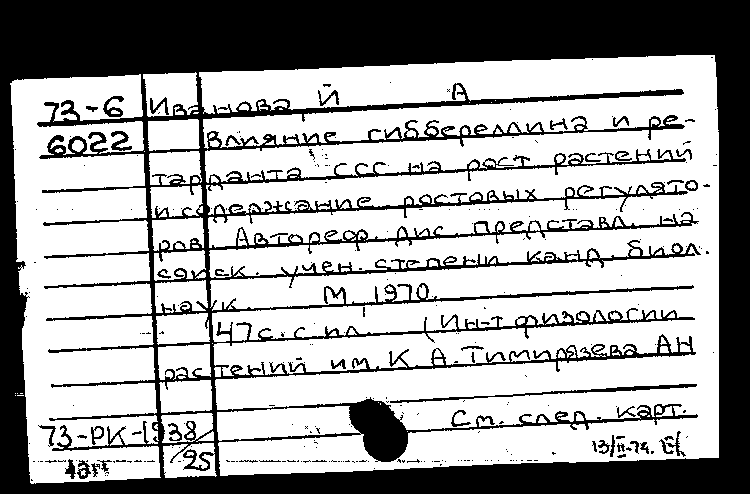 73-6 Иванова, Й А
6022 Влияние гиббереллина и ре-
тарданта ССС на рост растений
и содержание ростовых регулято-
ров. Автореф. дис. представл. на
соиск. учен. степени канд. биол.
наук. М., 1970.
47с. с ил. (Ин-т физиологии
растений им. К. А. Тимирязева АН
См. след. карт.
73-РК-1938
25
13/II-74.